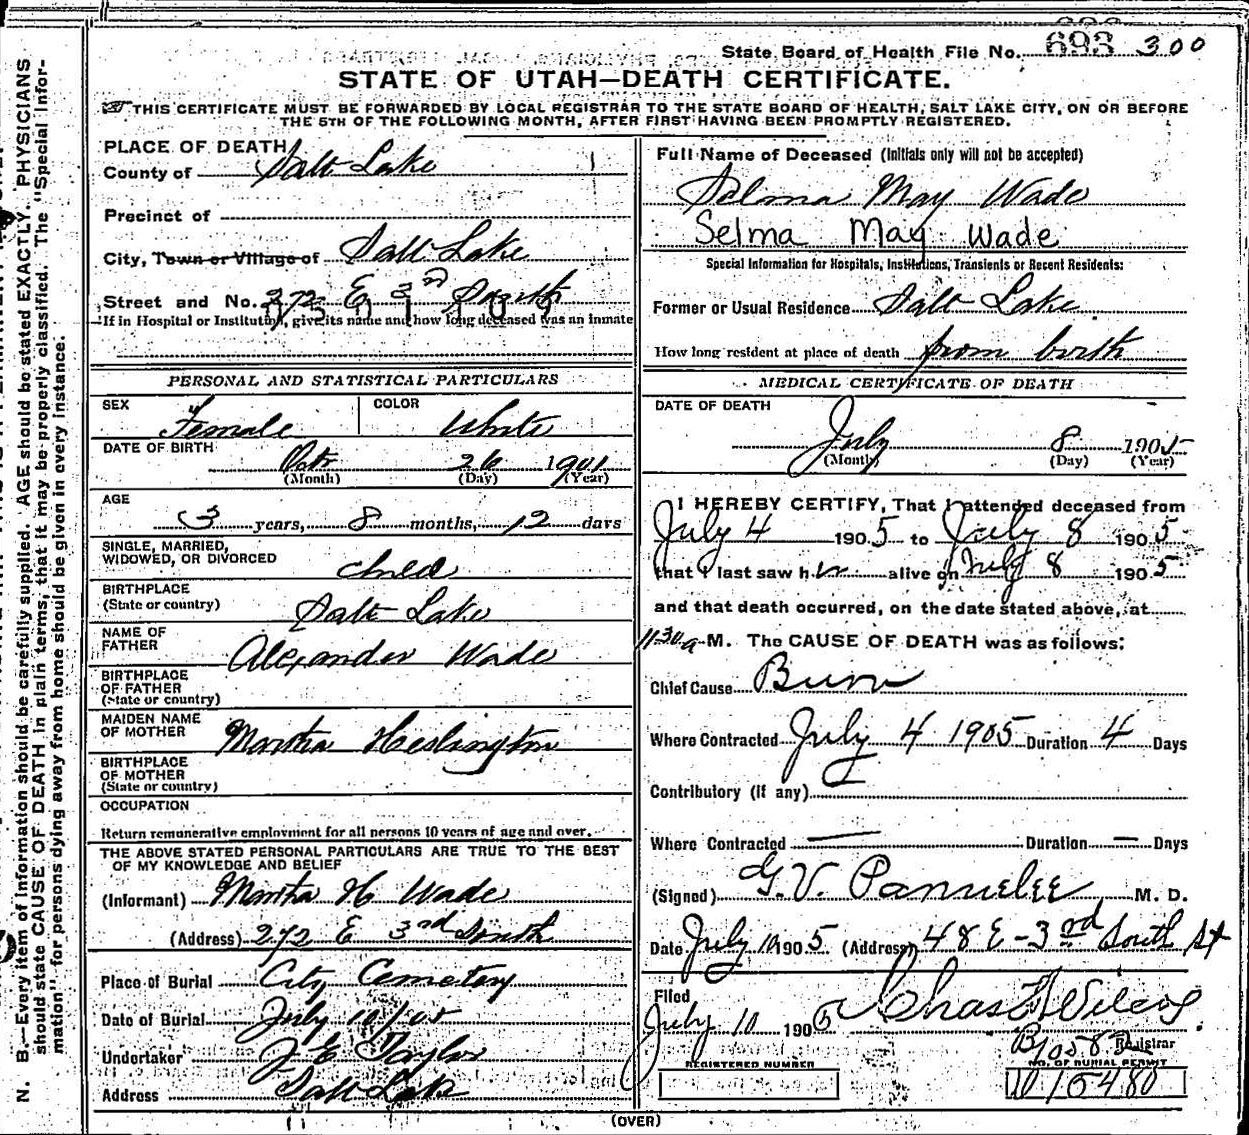 State Board of Health File No. 693 300
STATE OF UTAH—DEATH CERTIFICATE.
THIS CERTIFICATE MUST BE FORWARDED BY LOCAL REGISTRAR TO THE STATE BOARD OF HEALTH, SALT LAKE CITY, ON OR BEFORE
THE 5TH OF THE FOLLOWING MONTH, AFTER FIRST HAVING BEEN PROMPTLY REGISTERED.
PLACE OF DEATH
County of Salt Lake
Precinct of
City, Town or Village of Salt Lake
Street and No. 272 E 3rd South
If in Hospital or Institution, give its name and how long deceased was an inmate
PERSONAL AND STATISTICAL PARTICULARS
SEX Female COLOR White
DATE OF BIRTH Oct 26 1901
(Month) (Day) (Year)
AGE
3 years, 8 months, 12 days
SINGLE, MARRIED,
WIDOWED, OR DIVORCED child
BIRTHPLACE
(State or country) Salt Lake
NAME OF
FATHER Alexander Wade
BIRTHPLACE
OF FATHER
(State or country)
MAIDEN NAME
OF MOTHER Martha Heslington
BIRTHPLACE
OF MOTHER
(State or country)
OCCUPATION
Return remunerative employment for all persons 10 years of age and over.
THE ABOVE STATED PERSONAL PARTICULARS ARE TRUE TO THE BEST
OF MY KNOWLEDGE AND BELIEF
(Informant) Martha H Wade
(Address) 272 E 3rd South
Place of Burial City Cemetery
Date of Burial July 10/05
Undertaker J E Taylor
Address Salt Lake
Full Name of Deceased (Initials only will not be accepted)
Selma May Wade
Selma May Wade
Special Information for Hospitals, Institutions, Transients or Recent Residents:
Former or Usual Residence Salt Lake
How long resident at place of death from birth
MEDICAL CERTIFICATE OF DEATH
DATE OF DEATH
July 8 1905
(Month) (Day) (Year)
I HEREBY CERTIFY, That I attended deceased from
July 4 1905 to July 8 1905
that I last saw her alive on July 8 1905
and that death occurred, on the date stated above, at
1130a M. The CAUSE OF DEATH was as follows:
Chief Cause Burn
Where Contracted July 4 1905 Duration 4 Days
Contributory (if any)
Where Contracted — Duration — Days
(Signed) G. V. M. D.
Date July 10 1905 (Address) 48 E - 3rd South St
Filed
July 10 1905 Chas Wilcox
Registrar
REGISTERED NUMBER
NO. OF BURIAL PERMIT
(OVER)
N. B.—Every item of information should be carefully supplied. AGE should be stated EXACTLY. PHYSICIANS
should state CAUSE OF DEATH in plain terms, that it may be properly classified. The "Special Infor-
mation" for persons dying away from home should be given in every instance.